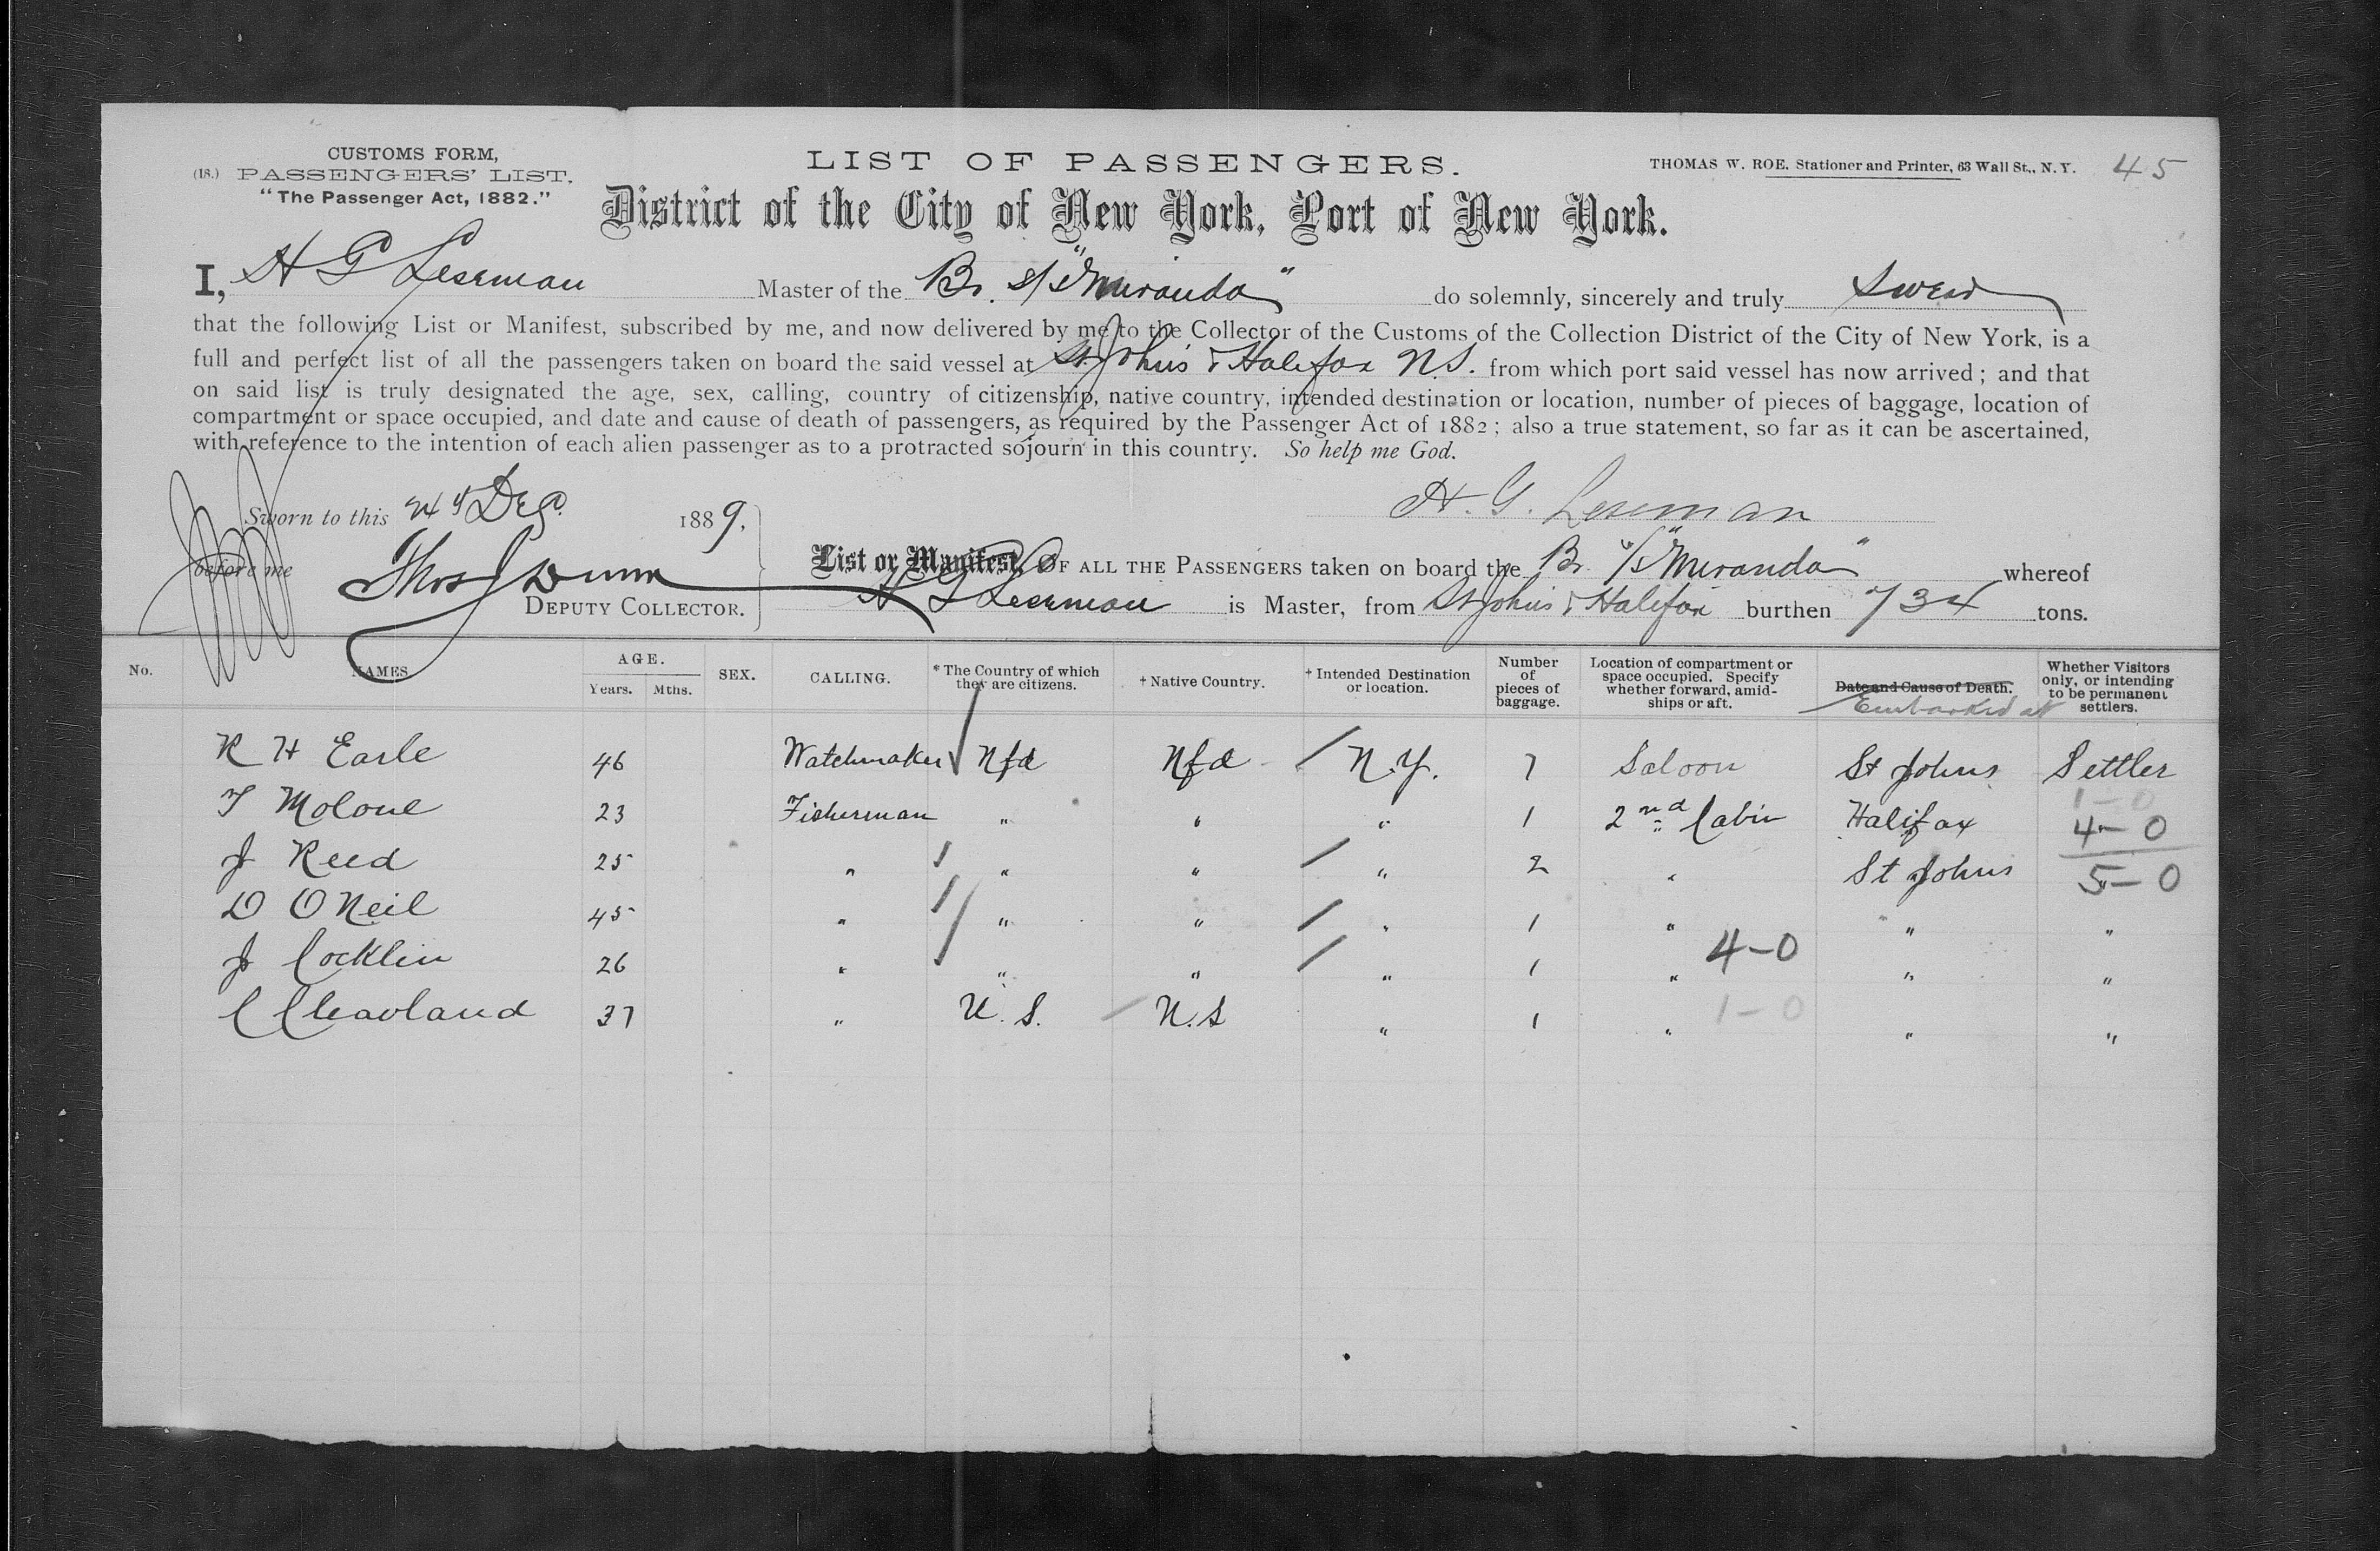 CUSTOMS FORM,
(18.) PASSENGERS' LIST.
"The Passenger Act, 1882."
LIST OF PASSENGERS.
THOMAS W. ROE. Stationer and Printer, 63 Wall St., N. Y. 45
District of the City of New York, Port of New York.
I, H G Leseman Master of the Br. s/s "Miranda" do solemnly, sincerely and truly Swear
that the following List or Manifest, subscribed by me, and now delivered by me to the Collector of the Customs of the Collection District of the City of New York, is a
full and perfect list of all the passengers taken on board the said vessel at St. Johns & Halifax N.S. from which port said vessel has now arrived; and that
on said list is truly designated the age, sex, calling, country of citizenship, native country, intended destination or location, number of pieces of baggage, location of
compartment or space occupied, and date and cause of death of passengers, as required by the Passenger Act of 1882; also a true statement, so far as it can be ascertained,
with reference to the intention of each alien passenger as to a protracted sojourn in this country. So help me God.
Sworn to this 24 Dec. 1889. H. G. Leseman
before me Thos J Dunn
DEPUTY COLLECTOR.
List or Manifest, OF ALL THE PASSENGERS taken on board the Br. s/s "Miranda" whereof
H G Leseman is Master, from St Johns & Halifax burthen 734 tons.
No. NAMES AGE. Years. Mths. SEX. CALLING. * The Country of which they are citizens. † Native Country. † Intended Destination or location. Number of pieces of baggage. Location of compartment or space occupied. Specify whether forward, amidships or aft. Date and Cause of Death. Embarked at Whether Visitors only, or intending to be permanent settlers.
R H Earle 46 Watchmaker Nfd Nfd N.Y. 7 Saloon St Johns Settler
1-0
T Molone 23 Fisherman " " " 1 2nd Cabin Halifax 4-0
J Reed 25 " " " " 2 " St Johns 5-0
D O Neil 45 " " " " 1 " " "
4-0
J Cocklin 26 " " " " 1 " " "
C Cleavland 37 " U.S. N.S " 1 " 1-0 " "